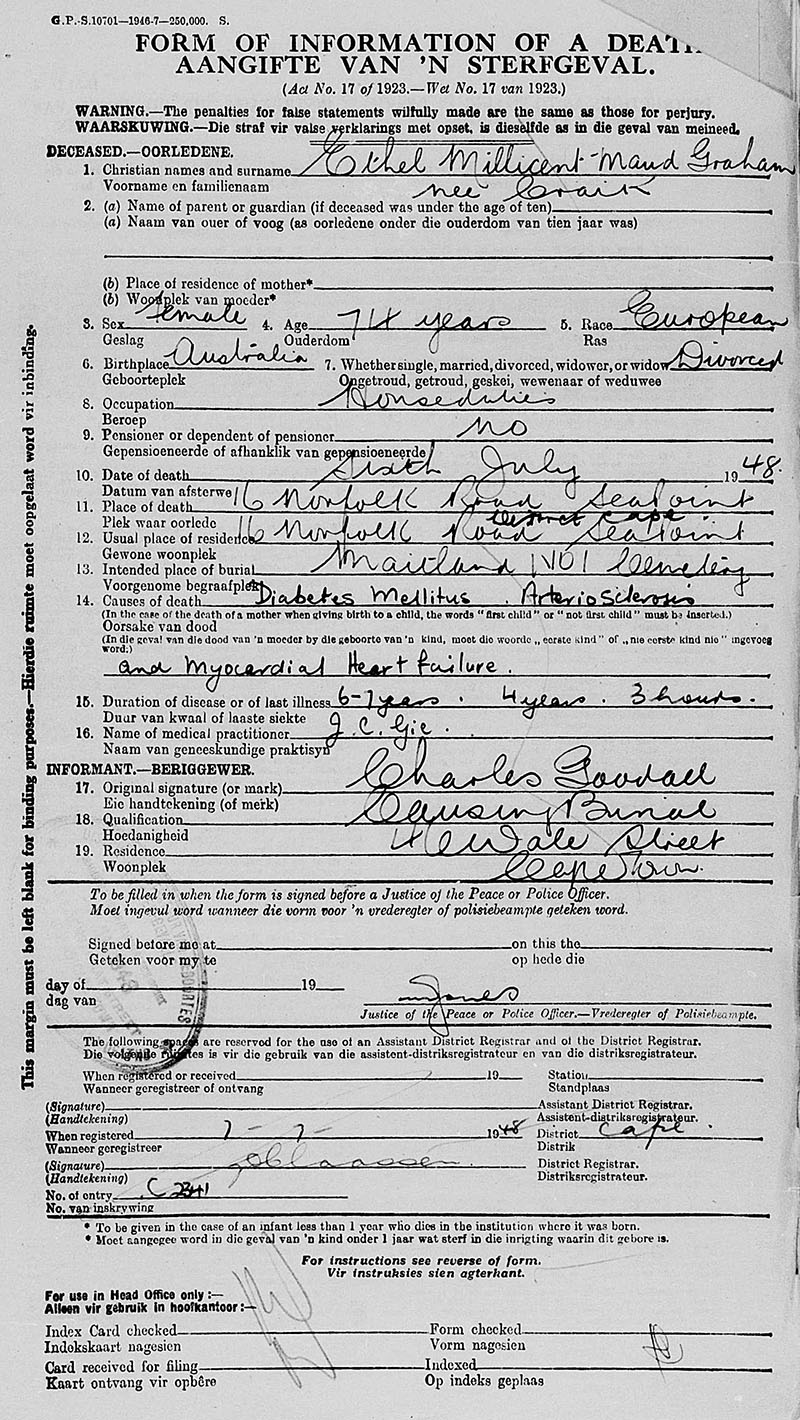 G.P.-S.10701—1946-7—250,000. S.
FORM OF INFORMATION OF A DEATH
AANGIFTE VAN 'N STERFGEVAL.
(Act No. 17 of 1923.—Wet No. 17 van 1923.)
WARNING.—The penalties for false statements wilfully made are the same as those for perjury.
WAARSKUWING.—Die straf vir valse verklarings met opset, is dieselfde as in die geval van meineed.
DECEASED.—OORLEDENE.
1. Christian names and surname Ethel Millicent Maud Graham
Voorname en familienaam nee Craik
2. (a) Name of parent or guardian (if deceased was under the age of ten)
(a) Naam van ouer of voog (as oorledene onder die ouderdom van tien jaar was)
(b) Place of residence of mother*
(b) Woonplek van moeder*
3. Sex female 4. Age 74 years 5. Race European
Geslag Ouderdom Ras
6. Birthplace Australia 7. Whether single, married, divorced, widower, or widow Divorced
Geboorteplek Ongetroud, getroud, geskei, wewenaar of weduwee
8. Occupation Houseduties
Beroep
9. Pensioner or dependent of pensioner no
Gepensioeneerde of afhanklik van gepensioeneerde
10. Date of death Sixth July 1948.
Datum van afsterwe
11. Place of death 16 Norfolk Road Sea Point
Plek waar oorlede District Cape
12. Usual place of residence 16 Norfolk Road Sea Point
Gewone woonplek
13. Intended place of burial Maitland No1 Cemetery
Voorgenome begraafplek
14. Causes of death Diabetes Mellitus . Arteriosclerosis
(In the case of the death of a mother when giving birth to a child, the words "first child" or "not first child" must be inserted.)
Oorsake van dood
(In die geval van die dood van 'n moeder by die geboorte van 'n kind, moet die woorde „eerste kind" of „nie eerste kind nie" ingevoeg word.)
and Myocardial Heart failure.
15. Duration of disease or of last illness 6-7 years . 4 years . 3 hours.
Duur van kwaal of laaste siekte
16. Name of medical practitioner J. C. Gie.
Naam van geneeskundige praktisyn
INFORMANT.—BERIGGEWER.
17. Original signature (or mark) Charles Goodall
Eie handtekening (of merk)
18. Qualification Causing Burial
Hoedanigheid
19. Residence Wale Street
Woonplek Cape Town.
To be filled in when the form is signed before a Justice of the Peace or Police Officer.
Moet ingevul word wanneer die vorm voor 'n vrederegter of polisiebeampte geteken word.
Signed before me at on this the
Geteken voor my te op hede die
day of 19
dag van
Justice of the Peace or Police Officer.—Vrederegter of Polisiebeampte.
The following spaces are reserved for the use of an Assistant District Registrar and of the District Registrar.
Die volgende ruimtes is vir die gebruik van die assistent-distriksregistrateur en van die distriksregistrateur.
When registered or received 19 Station
Wanneer geregistreer of ontvang Standplaas
(Signature) Assistant District Registrar.
(Handtekening) Assistent-distriksregistrateur.
When registered 7 - 7 - 1948 District Cape.
Wanneer geregistreer Distrik
(Signature) District Registrar.
(Handtekening) Distriksregistrateur.
No. of entry
No. van inskrywing
* To be given in the case of an infant less than 1 year who dies in the institution where it was born.
* Moet aangegee word in die geval van 'n kind onder 1 jaar wat sterf in die inrigting waarin dit gebore is.
For instructions see reverse of form.
Vir instruksies sien agterkant.
For use in Head Office only:—
Alleen vir gebruik in hoofkantoor:—
Index Card checked Form checked
Indekskaart nagesien Vorm nagesien
Card received for filing Indexed
Kaart ontvang vir opbêre Op indeks geplaas
This margin must be left blank for binding purposes.—Hierdie ruimte moet oopgelaat word vir inbinding.